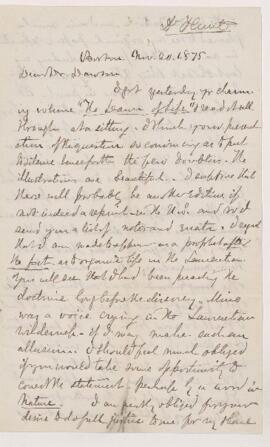 Boston Nov. 20. 1875
Dear Dr. Dawson
I got yesterday yr charm-
ing volume "The Dawn of Life" & read it all
through at a sitting. I think your present
ation of the question so convincing as to put
to silence henceforth the few doubters. The
illustrations are beautiful. I suppose that
there will probably be another edition if
not indeed a reprint in the U.S. and so I
send you a list of notes and errata. I regret
that I am made to appear as a prophet after
the fact as to organic life in the Laurentian.
You will see that I had been preaching the
doctrine long before the discovery. Mine
was a voice crying in the Laurentian
wilderness - if I may make such an
allusion. I should feel much obliged
if you would take some opportunity to
correct the statement, perhaps by a word in
Nature. I am greatly obliged for your
desire to do full justice to me for my share